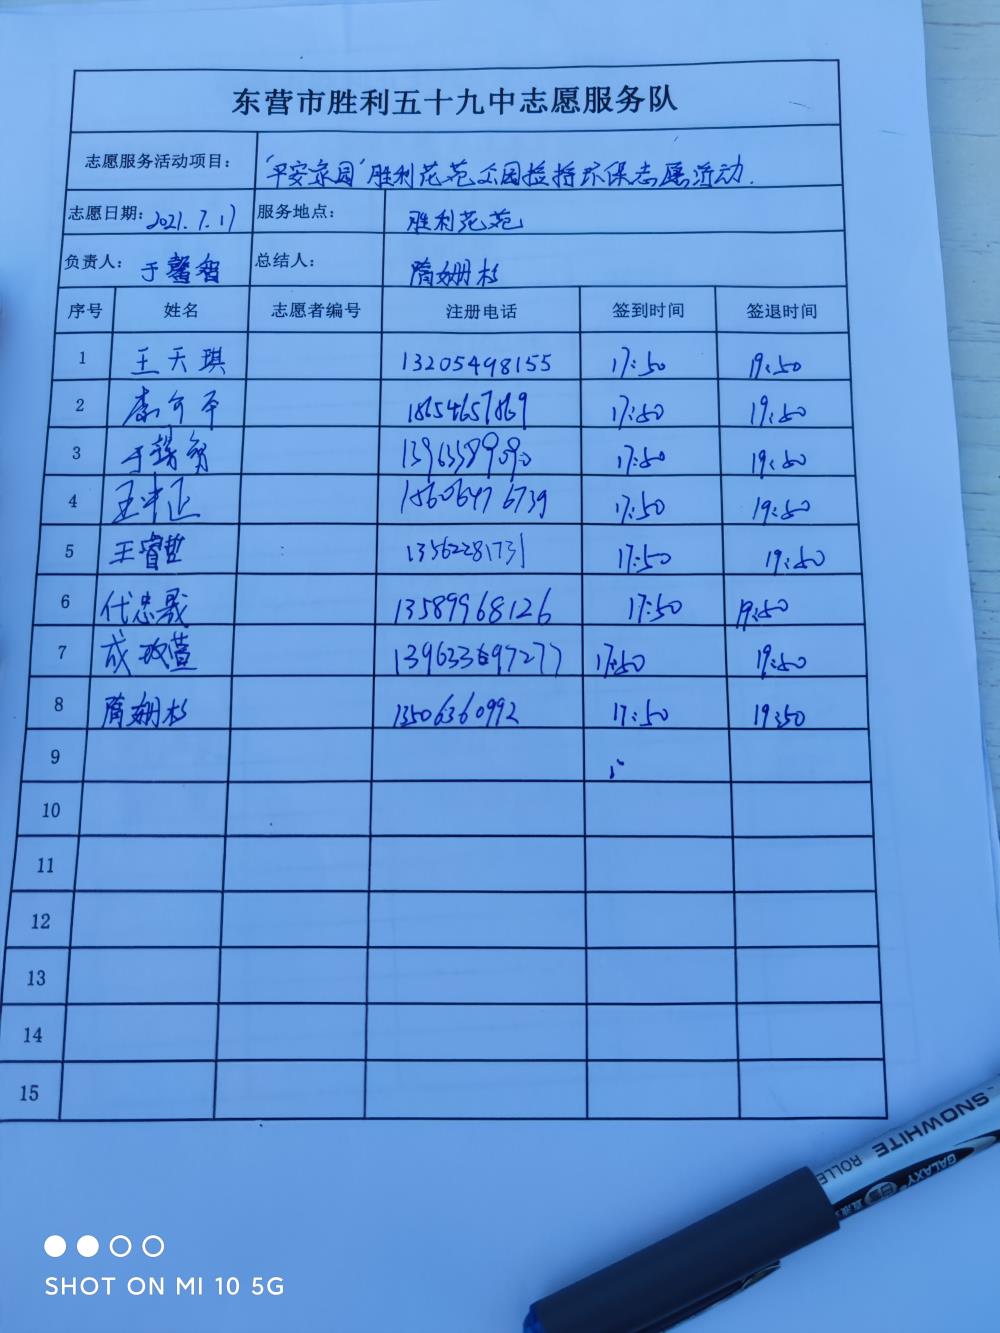 东营市胜利五十九中志愿服务队
志愿服务活动项目： "平安家园"胜利花苑公园捡拾环保志愿活动.
志愿日期：2021.7.17 服务地点： 胜利花苑
负责人： 于馨智 总结人： 隋姗杉
序号 姓名 志愿者编号 注册电话 签到时间 签退时间
1 王天琪 13205498155 17:50 19:50
2 18654657869 17:50 19:50
3 17:50 19:50
4 18606476739 17:50 19:50
5 王睿哲 13562281731 17:50 19:50
6 代忠晟 13589968126 17:50 19:50
7 17:50 19:50
8 隋姗杉 13506360992 17:50 19:50
9
10
11
12
13
14
15
SNOWHITE ROLLE
GALAXY
SHOT ON MI 10 5G